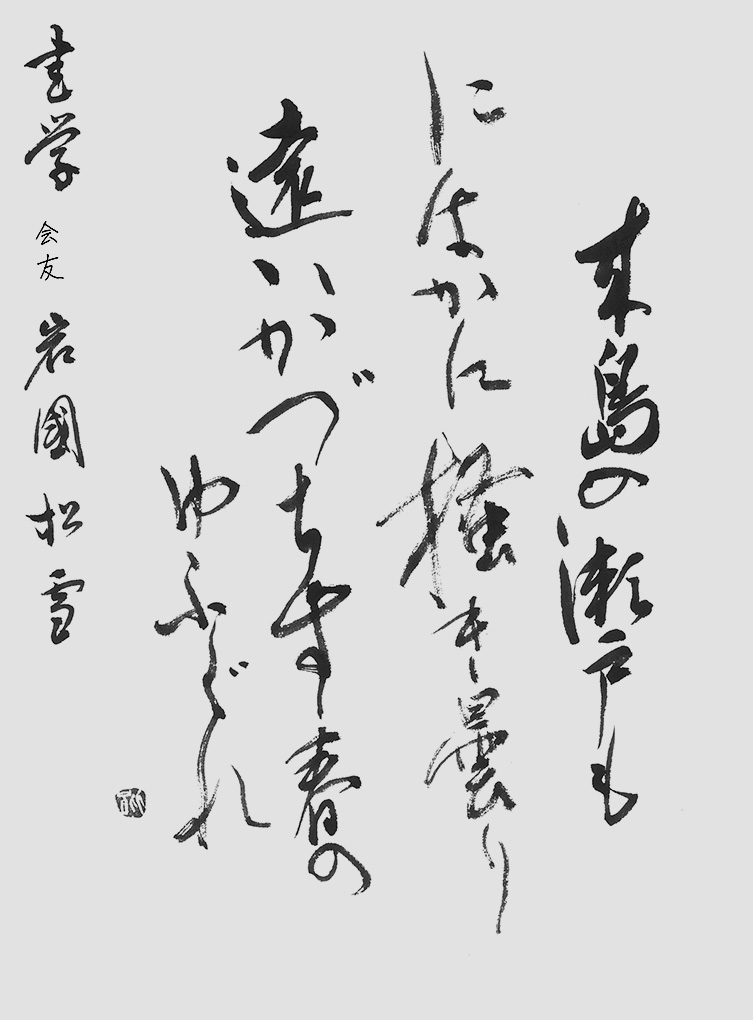 来島の瀬戸も
にはかに掻き曇り
遠いかづちす春の
ゆふぐれ
書学 会友 岩國松雪